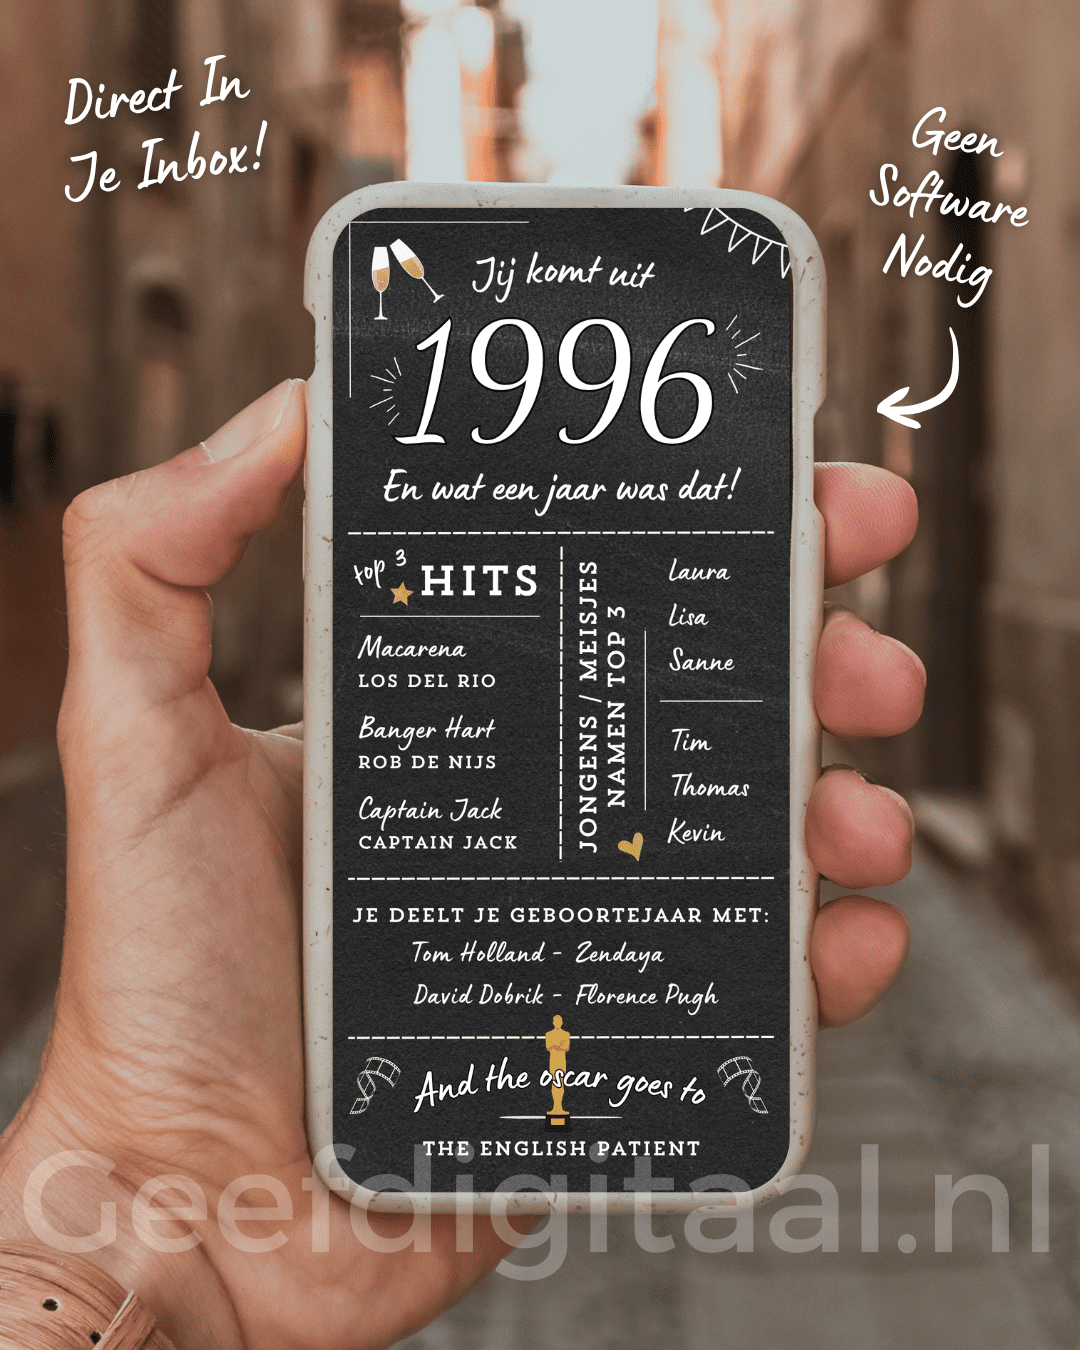 Direct In
Je Inbox!
Geen
Software
Nodig
Jij komt uit
1996
En wat een jaar was dat!
top 3
HITS
Macarena
LOS DEL RIO
Banger Hart
ROB DE NIJS
Captain Jack
CAPTAIN JACK
JONGENS / MEISJES
NAMEN TOP 3
Laura
Lisa
Sanne
Tim
Thomas
Kevin
JE DEELT JE GEBOORTEJAAR MET:
Tom Holland - Zendaya
David Dobrik - Florence Pugh
And the oscar goes to
THE ENGLISH PATIENT
Geefdigitaal.nl